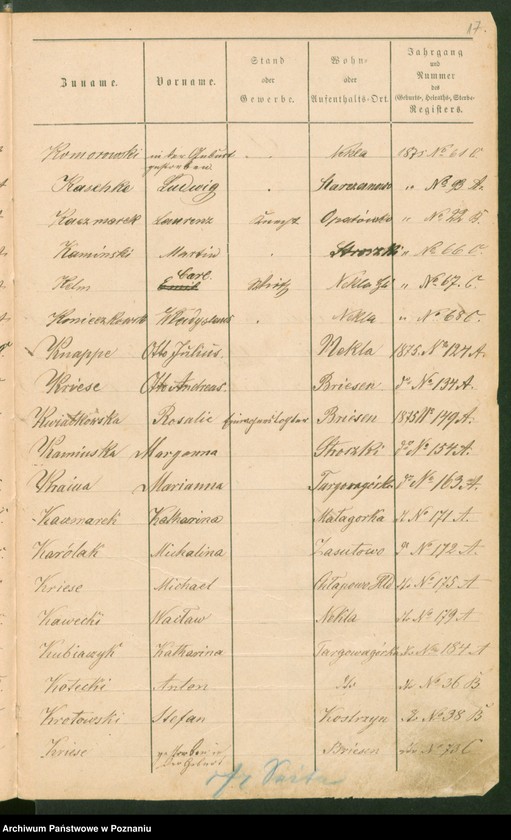 17.
Zuname. Vorname. Stand oder Gewerbe. Wohn- oder Aufenthalts-Ort. Jahrgang und Nummer des (Geburts-, Heiraths-, Sterbe-) Registers.
Komorowski in der Geburt gestorben Nekla 1875 No 61 C
Kaschke Ludwig " No A.
Kaczmarek Laurenz Opatówko " No 22 B.
Kamiński Martin Stroszki " No 66 C.
Helm Carl Nekla " No 67. C
Konieczkowski Wladyslaus Nekla " No 68 C.
Knappe Otto Julius. Nekla 1875 No 124 A.
Kriese Otto Andreas. Briesen do No 134 A.
Kwiatkowska Rosalie Briesen 1875 No 149 A.
Kaminska Stroszki do No 154 A.
Marianna Targowagórka do No 163 A.
Kaczmarek Katharina Matagorka do No 171 A.
Karólak Michalina Zasutowo do No 172 A
Kriese Michael Chłapowo Hld do No 175 A
Kawecki Wacław Nekla do No 179 A
Kubiaczyk Katharina Targowagórka do No 184 A
Kosicki Anton do do No 36 B
Krotowski Stefan Kostrzyn do No 38 B
Kriese gestorben in der Geburt Briesen do No 73 C
Archiwum Państwowe w Poznaniu